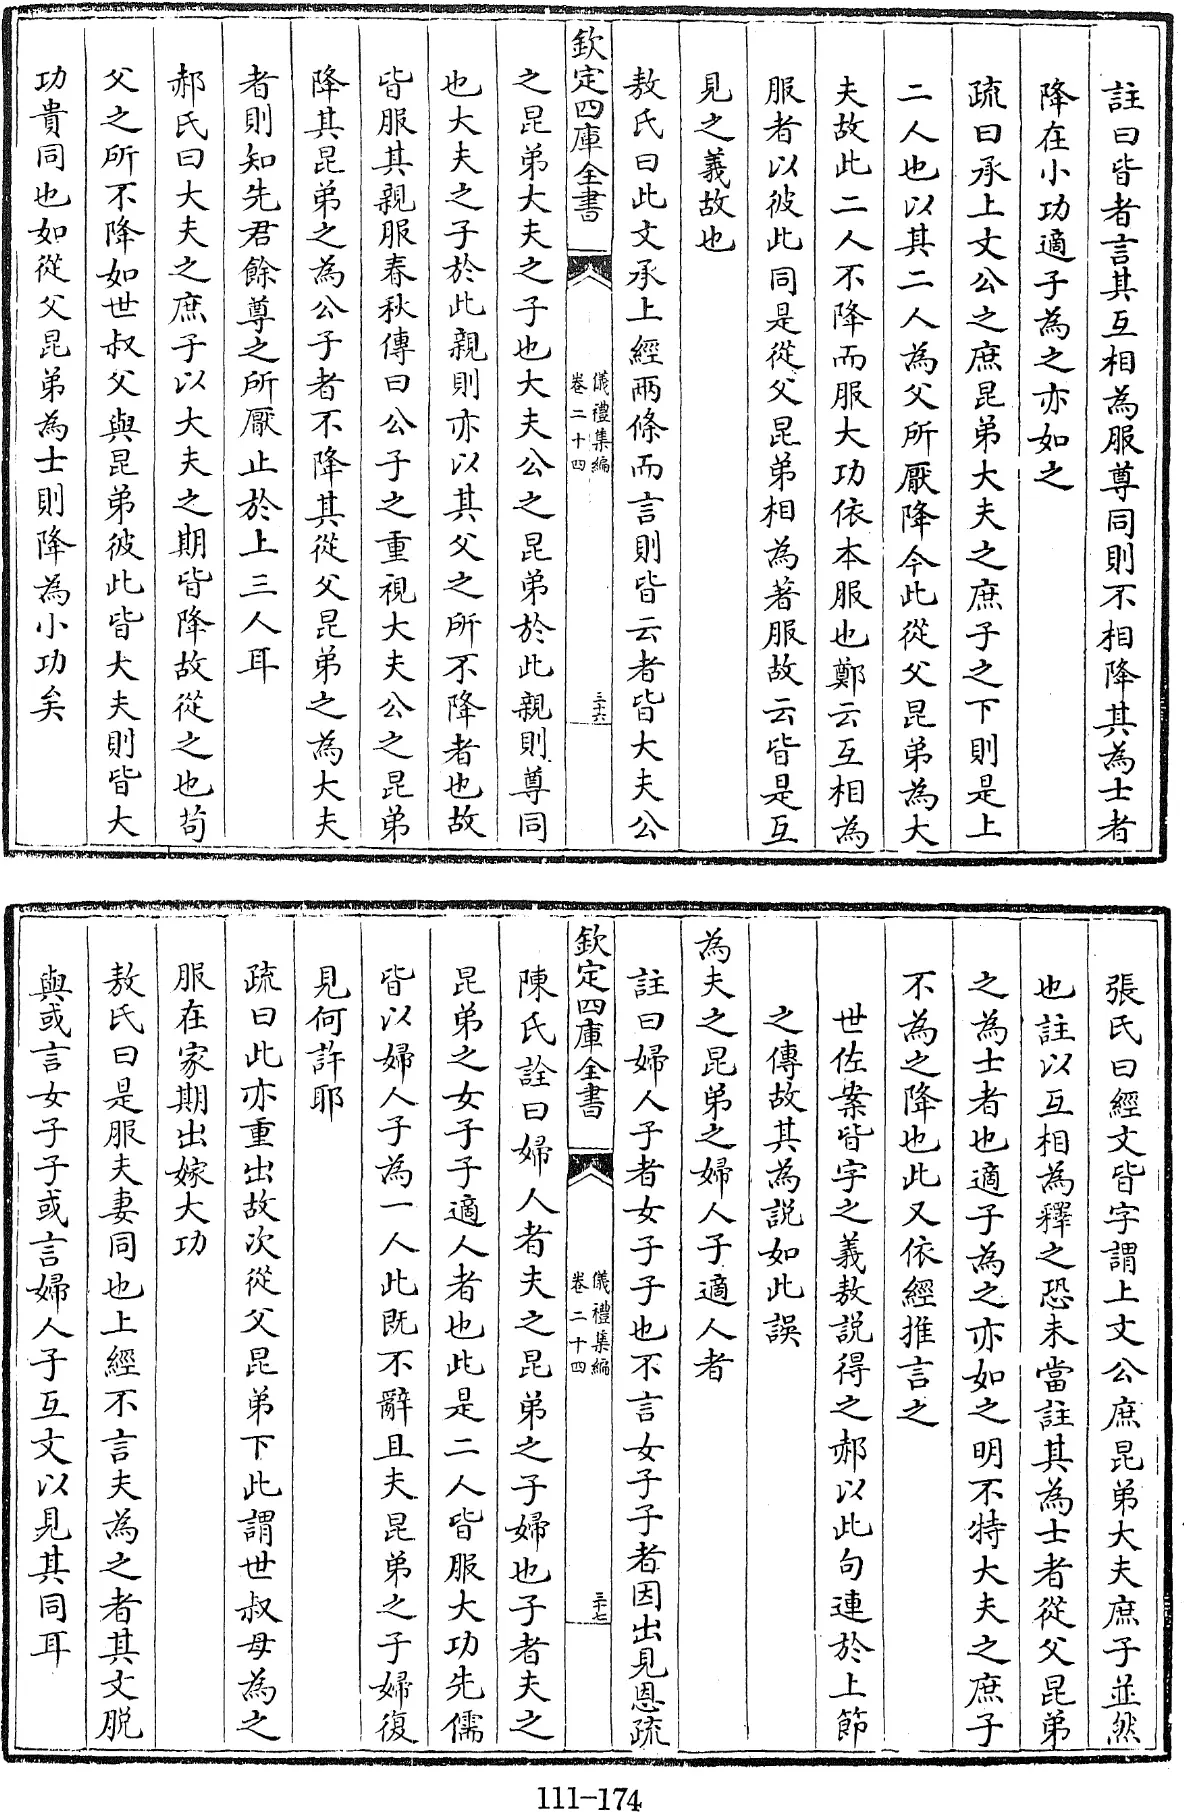 註曰皆者言其互相為服尊同則不相降其為士者
降在小功適子為之亦如之
疏曰承上文公之庶昆弟大夫之庶子之下則是上
二人也以其二人為父所厭降今此從父昆弟為大
夫故此二人不降而服大功依本服也鄭云互相為
服者以彼此同是從父昆弟相為著服故云皆是互
見之義故也
敖氏曰此文承上經兩條而言則皆云者皆大夫公
欽定四庫全書
儀禮集編
卷二十四
三十六
之昆弟大夫之子也大夫公之昆弟於此親則尊同
也大夫之子於此親則亦以其父之所不降者也故
皆服其親服春秋傳曰公子之重視大夫公之昆弟
降其昆弟之為公子者不降其從父昆弟之為大夫
者則知先君餘尊之所厭止於上三人耳
郝氏曰大夫之庶子以大夫之期皆降故從之也苟
父之所不降如世叔父與昆弟彼此皆大夫則皆大
功貴同也如從父昆弟為士則降為小功矣
張氏曰經文皆字謂上文公庶昆弟大夫庶子並然
也註以互相為釋之恐未當註其為士者從父昆弟
之為士者也適子為之亦如之明不特大夫之庶子
不為之降也此又依經推言之
世佐案皆字之義敖說得之郝以此句連於上節
之傳故其為說如此誤
為夫之昆弟之婦人子適人者
註曰婦人子者女子子也不言女子子者因出見恩疏
欽定四庫全書
儀禮集編
卷二十四
三十七
陳氏詮曰婦人者夫之昆弟之子婦也子者夫之
昆弟之女子子適人者也此是二人皆服大功先儒
皆以婦人子為一人此既不辭且夫昆弟之子婦復
見何許耶
疏曰此亦重出故次從父昆弟下此謂世叔母為之
服在家期出嫁大功
敖氏曰是服夫妻同也上經不言夫為之者其文脱
與或言女子子或言婦人子互文以見其同耳
111-174